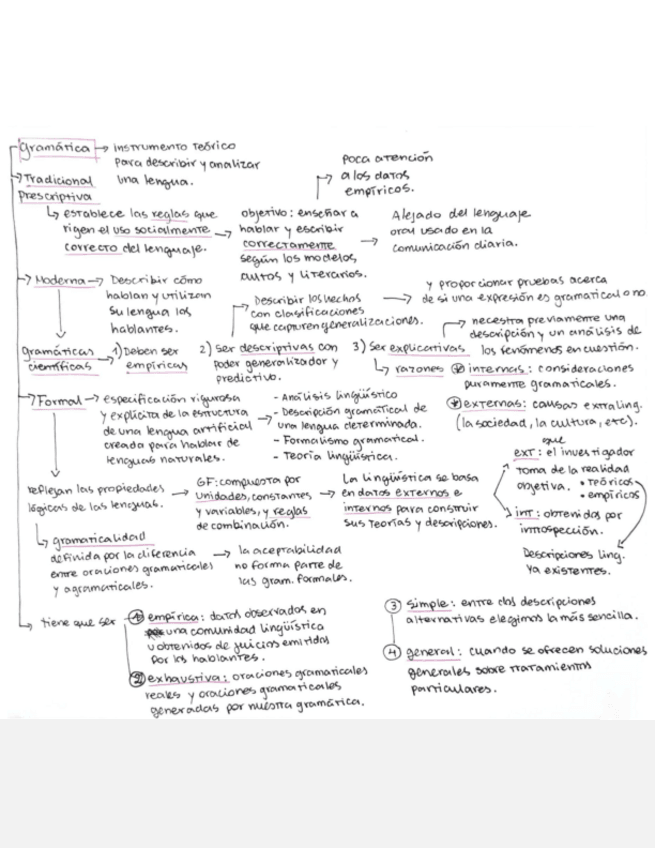 Gramática → instrumento teórico
para describir y analizar
una lengua.
→ Tradicional
Prescriptiva
↳ establece las reglas que
rigen el uso socialmente →
correcto del lenguaje.
objetivo: enseñar a
hablar y escribir
correctamente →
según los modelos
cultos y literarios.
poca atención
a los datos
empíricos.
Alejado del lenguaje
oral usado en la
comunicación diaria.
→ Moderna → Describir cómo
hablan y utilizan
su lengua los
hablantes.
gramáticas
científicas
→ 1) Deben ser
empíricas
2) Ser descriptivas con
poder generalizador y
predictivo.
Describir los hechos →
con clasificaciones
que capturen generalizaciones.
y proporcionar pruebas acerca
de si una expresión es gramatical o no
3) Ser explicativas
necesita previamente una
descripción y un análisis de
los fenómenos en cuestión.
↳ razones * internas: consideraciones
puramente gramaticales.
* externas: causas extraling.
(la sociedad, la cultura, etc).
→ Formal → especificación rigurosa
y explícita de la estructura →
de una lengua artificial
creada para hablar de
lenguas naturales.
- Análisis lingüístico
- Descripción gramatical de
una lengua determinada.
- Formalismo gramatical.
- Teoría lingüística.
reflejan las propiedades →
lógicas de las lenguas.
GF: compuesta por
unidades, constantes →
y variables, y reglas
de combinación.
La lingüística se basa
en datos externos e
internos para construir
sus teorías y descripciones.
que
EXT: el investigador
toma de la realidad
objetiva. • teóricos
• empíricos
INT: obtenidos por
introspección.
Descripciones ling.
ya existentes.
↳ gramaticalidad
definida por la diferencia →
entre oraciones gramaticales
y agramaticales.
la aceptabilidad
no forma parte de
las gram. formales.
→ tiene que ser
1 empírica: datos observados en
una comunidad lingüística
u obtenidos de juicios emitidos
por los hablantes.
2 exhaustiva: oraciones gramaticales
reales y oraciones gramaticales
generadas por nuestra gramática.
3 simple: entre dos descripciones
alternativas elegimos la más sencilla.
4 general: cuando se ofrecen soluciones
generales sobre tratamientos
particulares.